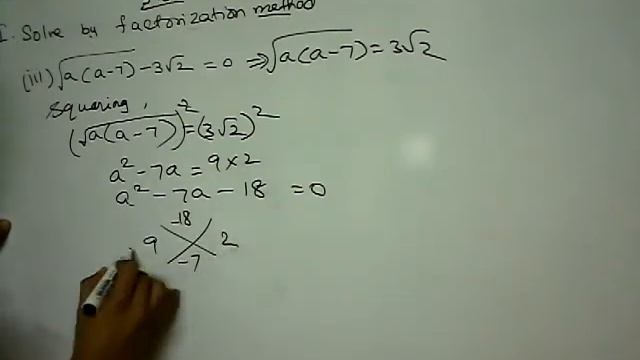 I. Solve by factorization method
(iii) √a(a-7) - 3√2 = 0 ⇒ √a(a-7) = 3√2
Squaring,
(√a(a-7))² = (3√2)²
a² - 7a = 9×2
a² - 7a - 18 = 0
-18
9 2
-7